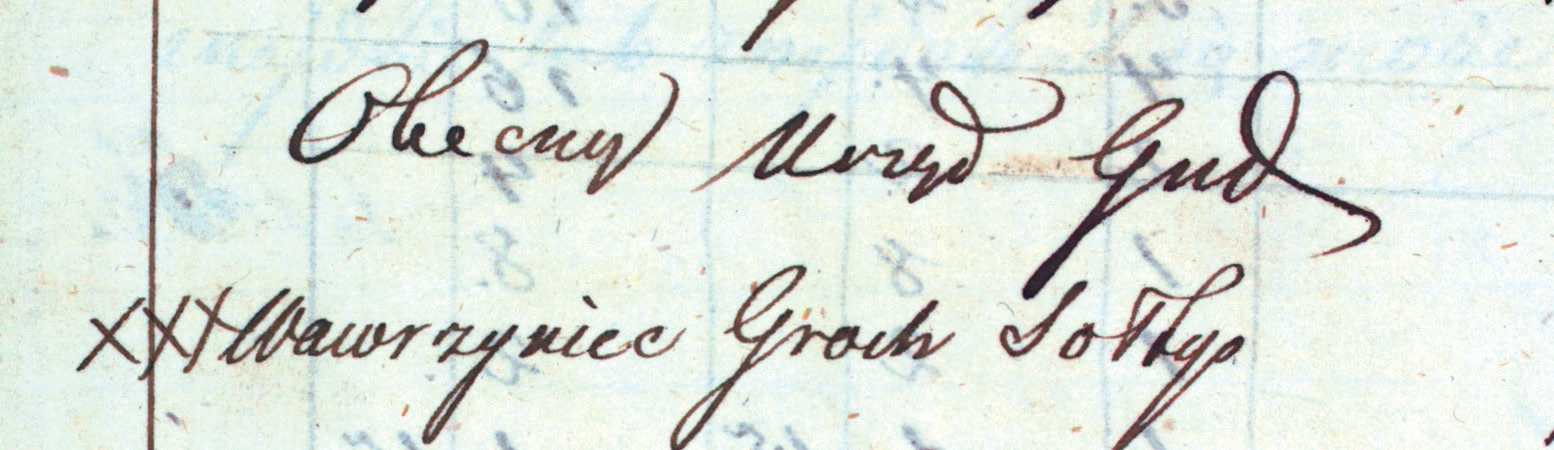 Obecny Urząd Gud
XXX Wawrzyniec Groch Sołtys